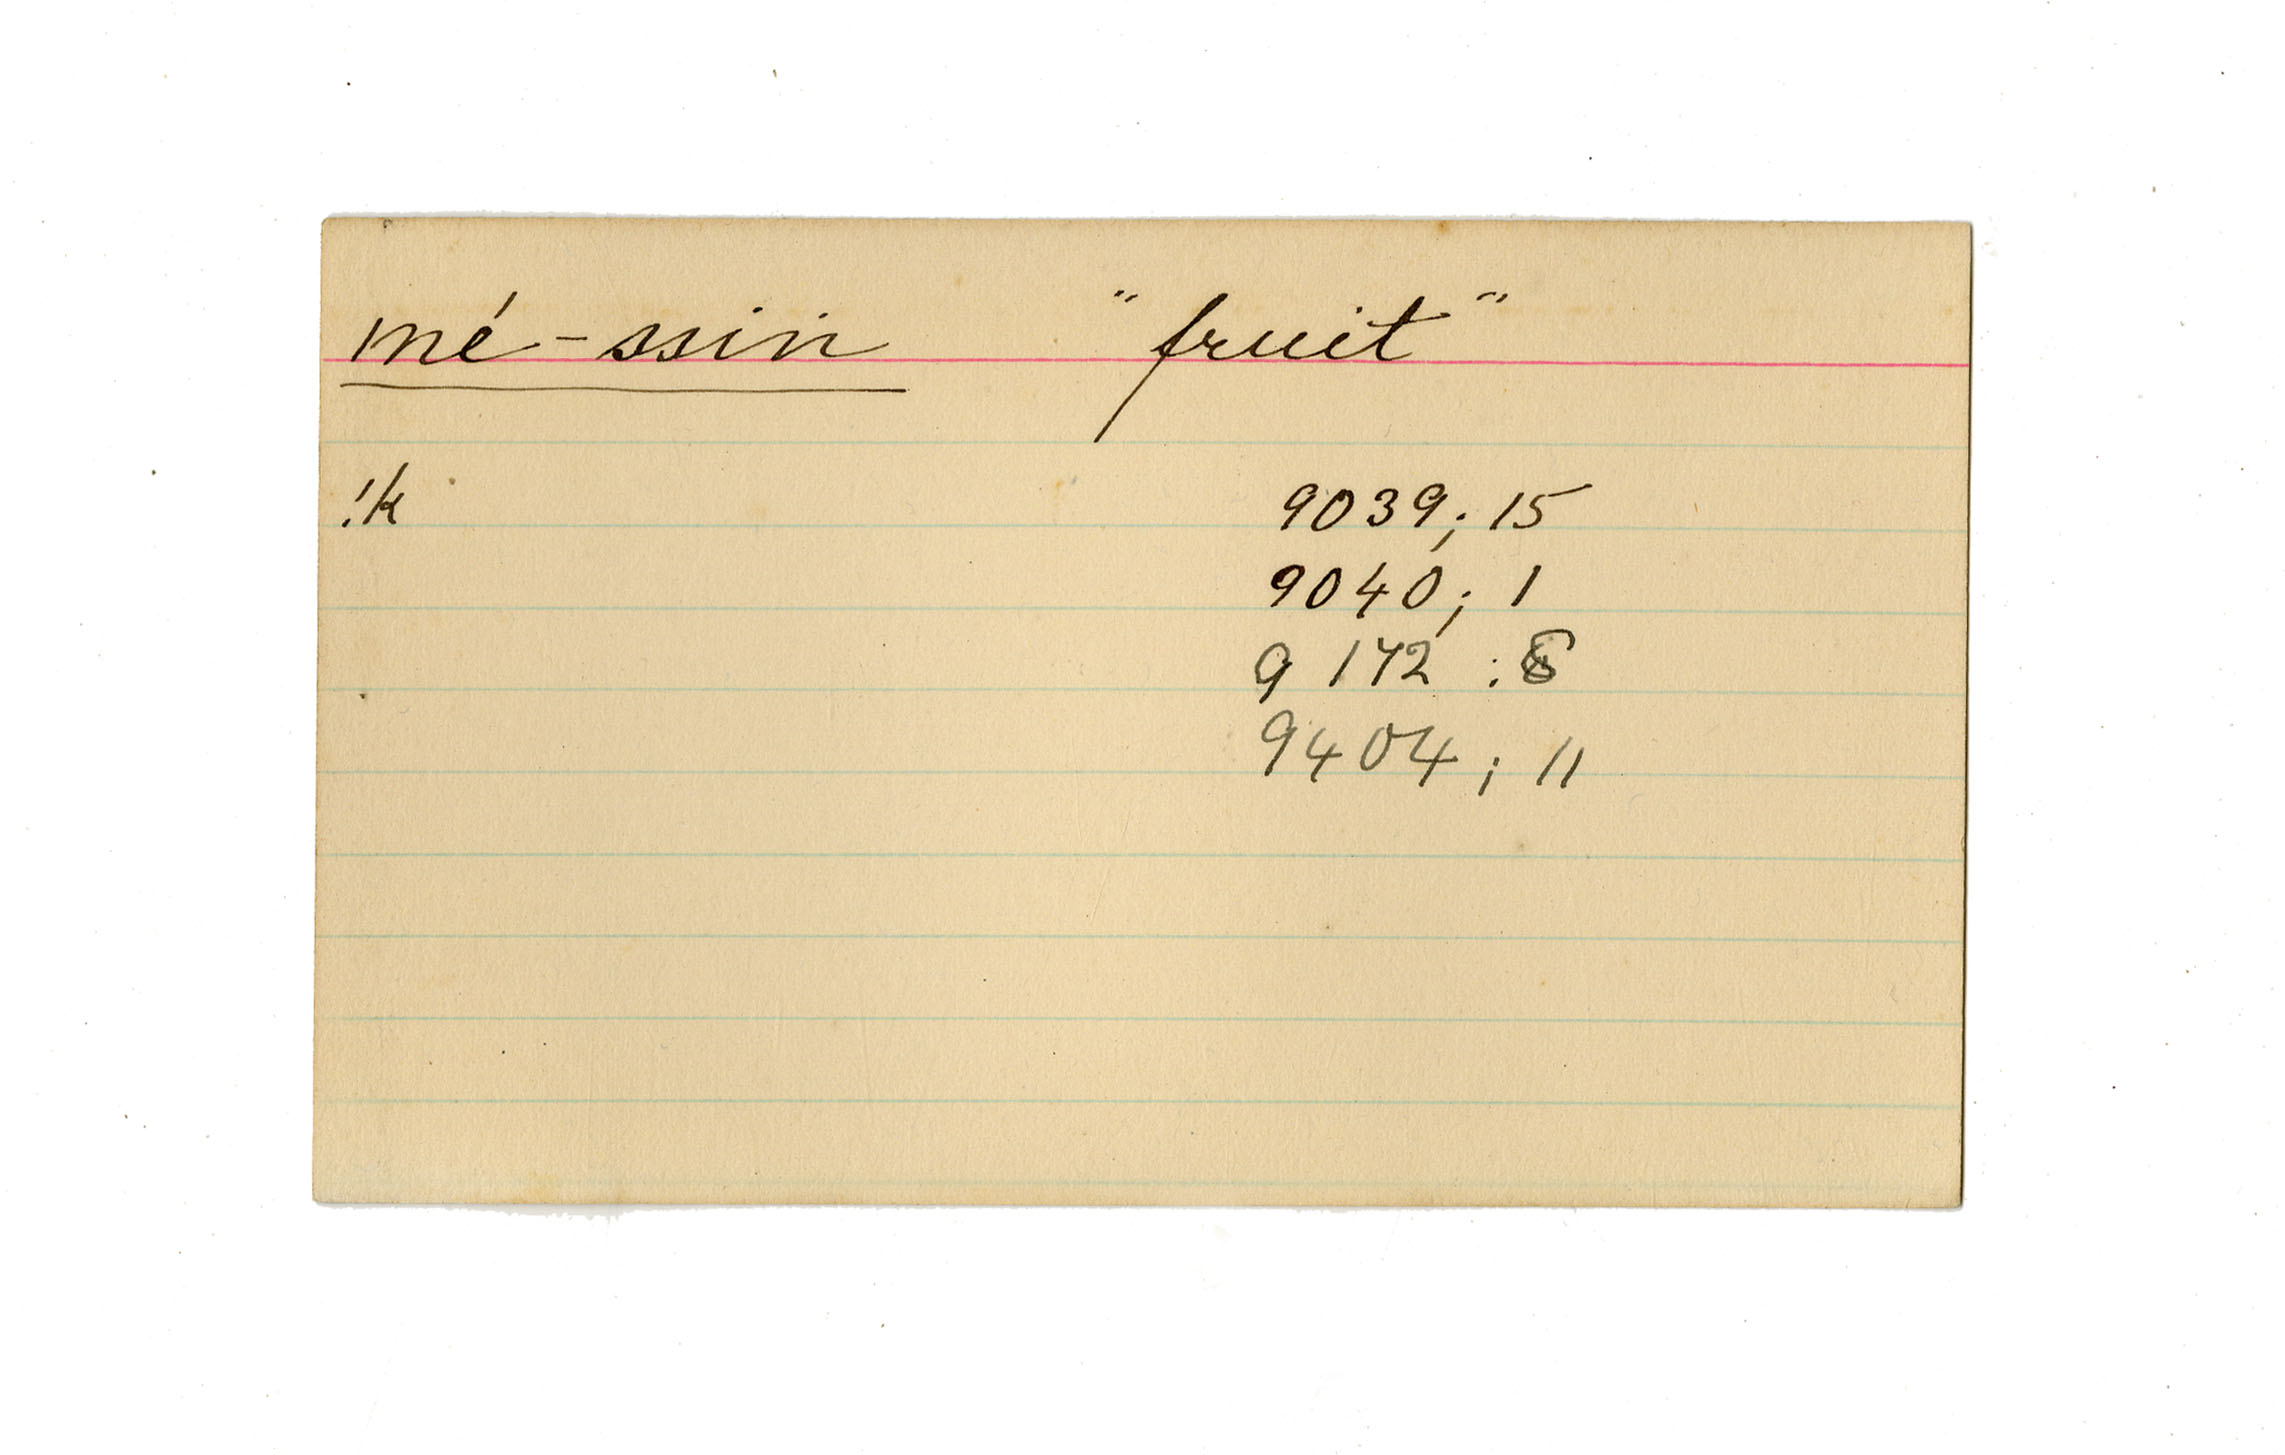 mé-ssin "fruit"
!k 9039; 15
9040; 1
9172 :
9404; 11